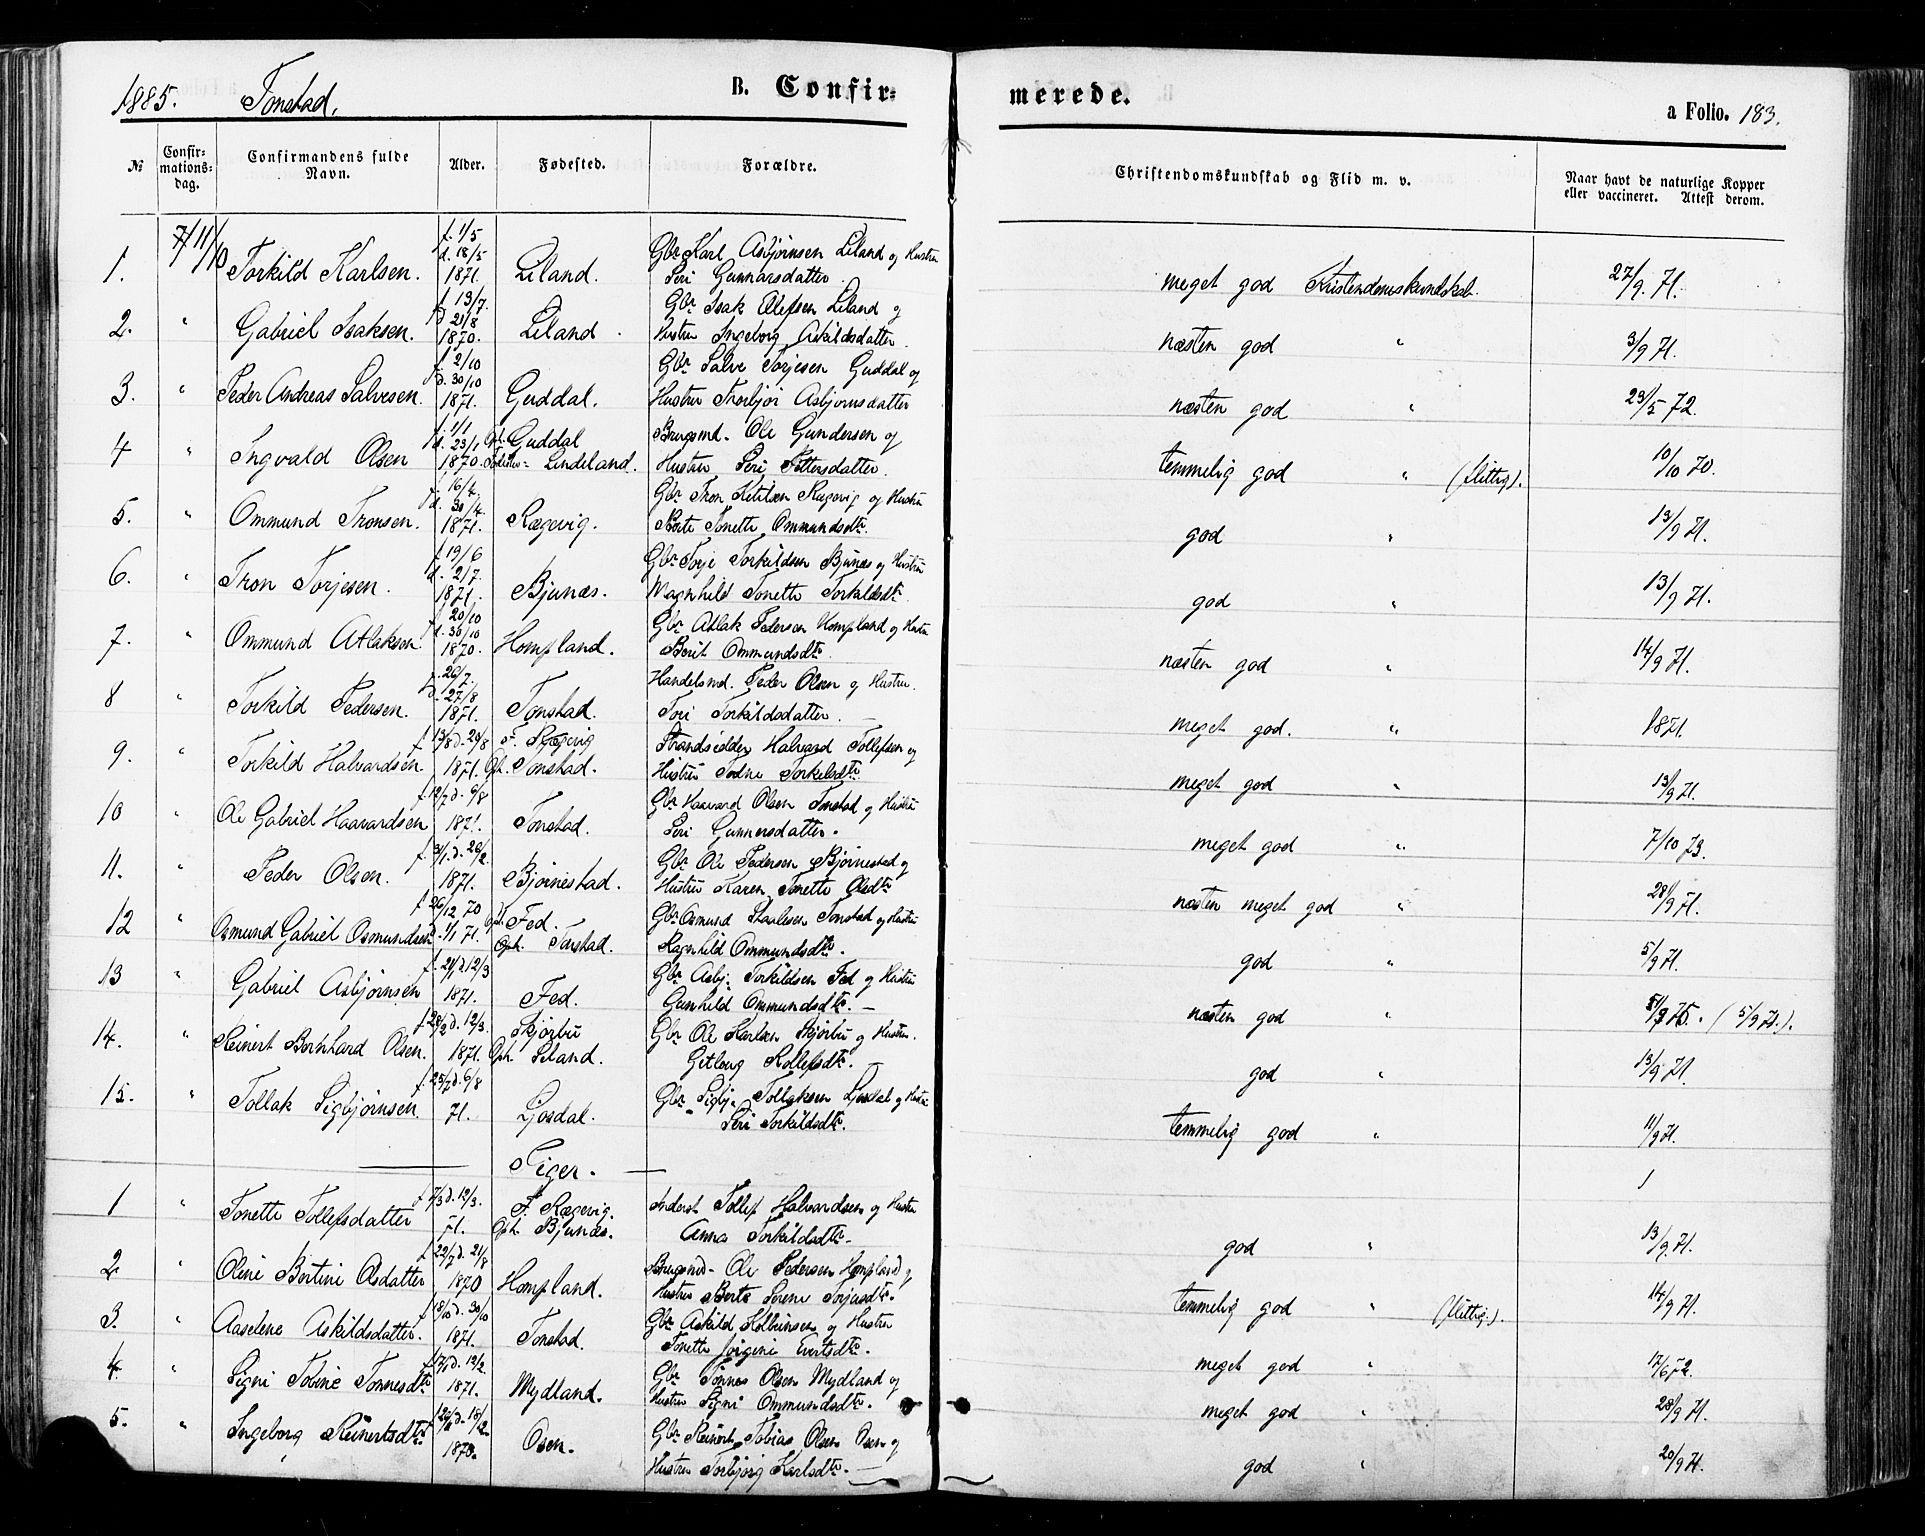 1885. Tonstad.
B. Confir-
merede.
a Folio. 183.
№
Confir-
mations-
dag.
Confirmandens fulde
Navn.
Alder.
Fødested.
Forældre.
Christendomskundskab og Flid m. v.
Naar havt de naturlige Kopper
eller vaccineret. Attest derom.
1. 11/10 Torkild Karlsen. f. 1/5 d. 18/5 1871. Liland. Gbr Karl Asbjørnsen Liland og Hustru
Seri Gunnarsdatter. meget god Kristendomskundskab. 27/9. 71.
2. " Gabriel Isaksen. f. 13/7. d 21/8 1870. Liland. Gbr Isak Olefsen Liland og
Hustru Ingeborg Askildsdatter. næsten god " 3/9 71.
3. " Peder Andreas Salvesen. f. 2/10 d. 30/10 1871. Guddal. Gbr Salve Torjesen Guddal og
Hustru Torbjør Asbjørnsdatter næsten god " 23/5 72.
4 " Ingvald Olsen f. 1/1 d. 23/1 1870. Oph. Guddal
Lindeland. Brugsmd. Ole Gundersen og
Hustru Seri Pettersdatter. temmelig god " (flittig). 10/10 70.
5. " Ommund Tronsen. f. 16/4 d. 30/4. 1871. Rægevig. Gbr Tron Ketilsen Rægevig og Hustru
Berte Tonette Ommundsdtr. god " 13/9 71.
6. " Tron Torjesen. f. 19/6 d. 2/7. 1871. Bjunæs. Gbr Torje Torkildsen Bjunæs og Hustru
Magnhild Tonette Torkildsdtr. god " 13/9 71.
7. " Ommund Atlaksen. f. 20/10 d. 30/10 1870. Hompland. Gbr Atlak Pedersen Hompland og Hustru
Berit Ommundsdtr. næsten god " 14/9 71.
8 " Torkild Pedersen. f. 26/7. d. 27/8 1871. Tonstad. Handelsmd. Peder Olsen og Hustru.
Tori Torkildsdatter. meget god. " 1871.
9. " Torkild Halvardsen. f. 13/8 d. 20/8 1871. F. Rægevig
Oph. Tonstad. Strandsidder Halvard Tollefsen og
Hustru Todne Torkelsdtr. meget god " 13/9 71.
10 " Ole Gabriel Haavardsen f. 12/7 d. 6/8 1871. Tonstad. Gbr Haavard Olsen Tonstad og Hustru
Seri Gunnersdatter. meget god " 7/10 73.
11. " Peder Olsen. f. 3/1. d. 26/2. 1871. Bjørnestad. Gbr Ole Pedersen Bjørnestad og
Hustru Karen Tonette Olsdtr næsten meget god " 28/9 71.
12 " Osmund Gabriel Osmundsen f 26/12 70 d. 1/1 71. Fed.
Oph. Tonstad. Gbr Osmund Staalesen Tonstad og Hustru
Ragnhild Ommundsdtr. god " 5/9 71.
13 " Gabriel Asbjørnsen f. 21/1 d. 12/3 1871. Fed. Gbr Asbj. Torkildsen Fed og Hustru
Gunhild Ommundsdtr. — næsten god " (5/9 71.).
14. " Reinert Bernhard Olsen. f. 28/2 d. 12/3. 1871. Skjørbu
Oph. Liland. Gbr Ole Karlsen Skjørbu og Hustru.
Getlaug Rollefsdtr. god " 13/9 71.
15. " Tollak Sigbjørnsen. f. 25/7 d. 6/8 71. Ljosdal. Gbr Sigbj. Tollaksen Ljosdal og Hustru
Seri Torkildsdtr. temmelig god " 11/9 71.
Piger.
1 " Tonette Tollefsdatter f 7/3 d. 12/3. 71. F. Rægevig.
Oph. Bjunæs. Inderst Tollef Halvardsen og Hustru
Anna Torkildsdtr. god " 13/9. 71.
2. " Oline Bertine Olsdatter f 22/7 d. 21/8 1870 Hompland. Brugsmd. Ole Pedersen Hompland og
Hustru Berte Serene Torjesdtr. temmelig god " (flittig). 14/9 71.
3. " Aaselene Askildsdatter. f 18/10 d. 30/10 1871. Tonstad. Gbr Askild Kolbeinsen og Hustru
Tonette Jørgine Evertsdtr. meget god " 17/6 72.
4. " Signi Tobine Tønnesdtr d. 12/2 1871. Mydland. Gbr Tønnes Olsen Mydland og
Hustru Signi Ommundsdtr. meget god " 28/9 71.
5. " Ingeborg Reinertsdtr d. 18/12 1870. Osen. Gbr Reinert Tobias Olsen Osen og
Hustru Torbjørg Karlsdtr. god " 20/9 71.